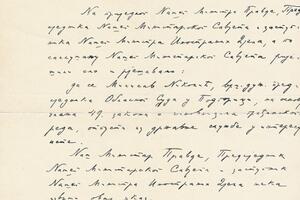 На предлог Нашег Министра Правде, Пред-
седника Нашег Министарског Савета и заступ-
ника Нашег Министра Иностраних Дела, а по
саслушању Нашег Министарског Савета реши-
ли смо и решавамо:
да се Никола, председ-
ника Обласног Суда у Подгорици, на осно-
49. закона о чиновницима грађанског
реда, отпусти из државне службе у интересу
исте.
Наш Министар Правде, Председник
Нашег Министарског Савета и заступник
Нашег Министра Иностраних Дела нека
изврши овај указ.